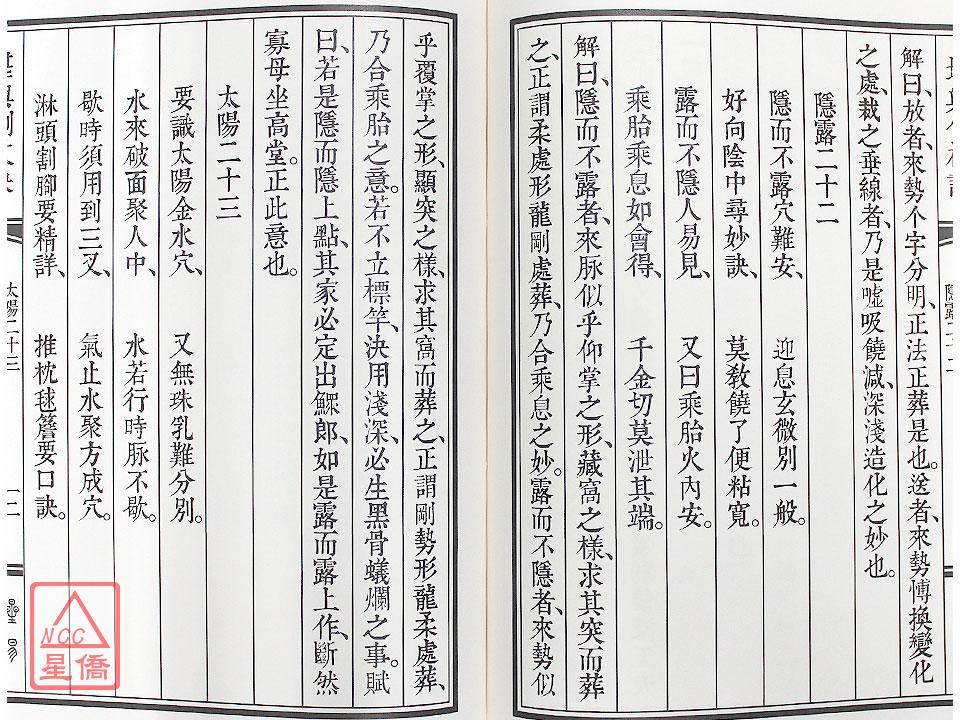 解曰、放者、來勢个字分明、正法正葬是也。送者、來勢愽換變化
之處、裁之垂線者、乃是噓吸饒減、深淺造化之妙也。
隱露二十二
隱而不露穴難安、 迎息玄微別一般。
好向陰中尋妙訣、 莫教饒了便粘寬。
露而不隱人易見、 又曰乘胎火內安。
乘胎乘息如會得、 千金切莫泄其端。
解曰、隱而不露者、來脉似乎仰掌之形、藏窩之樣、求其突而葬
之、正謂柔處形龍剛處葬、乃合乘息之妙。露而不隱者、來勢似
乎覆掌之形、顯突之樣、求其窩而葬之、正謂剛勢形龍柔處葬、
乃合乘胎之意。若不立標竿、決用淺深、必生黑骨蟻爛之事。賦
曰、若是隱而隱上點、其家必定出鰥郎、如是露而露上作、斷然
寡母坐高堂。正此意也。
太陽二十三
要識太陽金水穴、 又無珠乳難分別。
水來破面聚人中、 水若行時脉不歇。
歇時須用到三叉、 氣止水聚方成穴。
淋頭割腳要精詳、 推枕毬簷要口訣。
太陽二十三
NCC
星僑